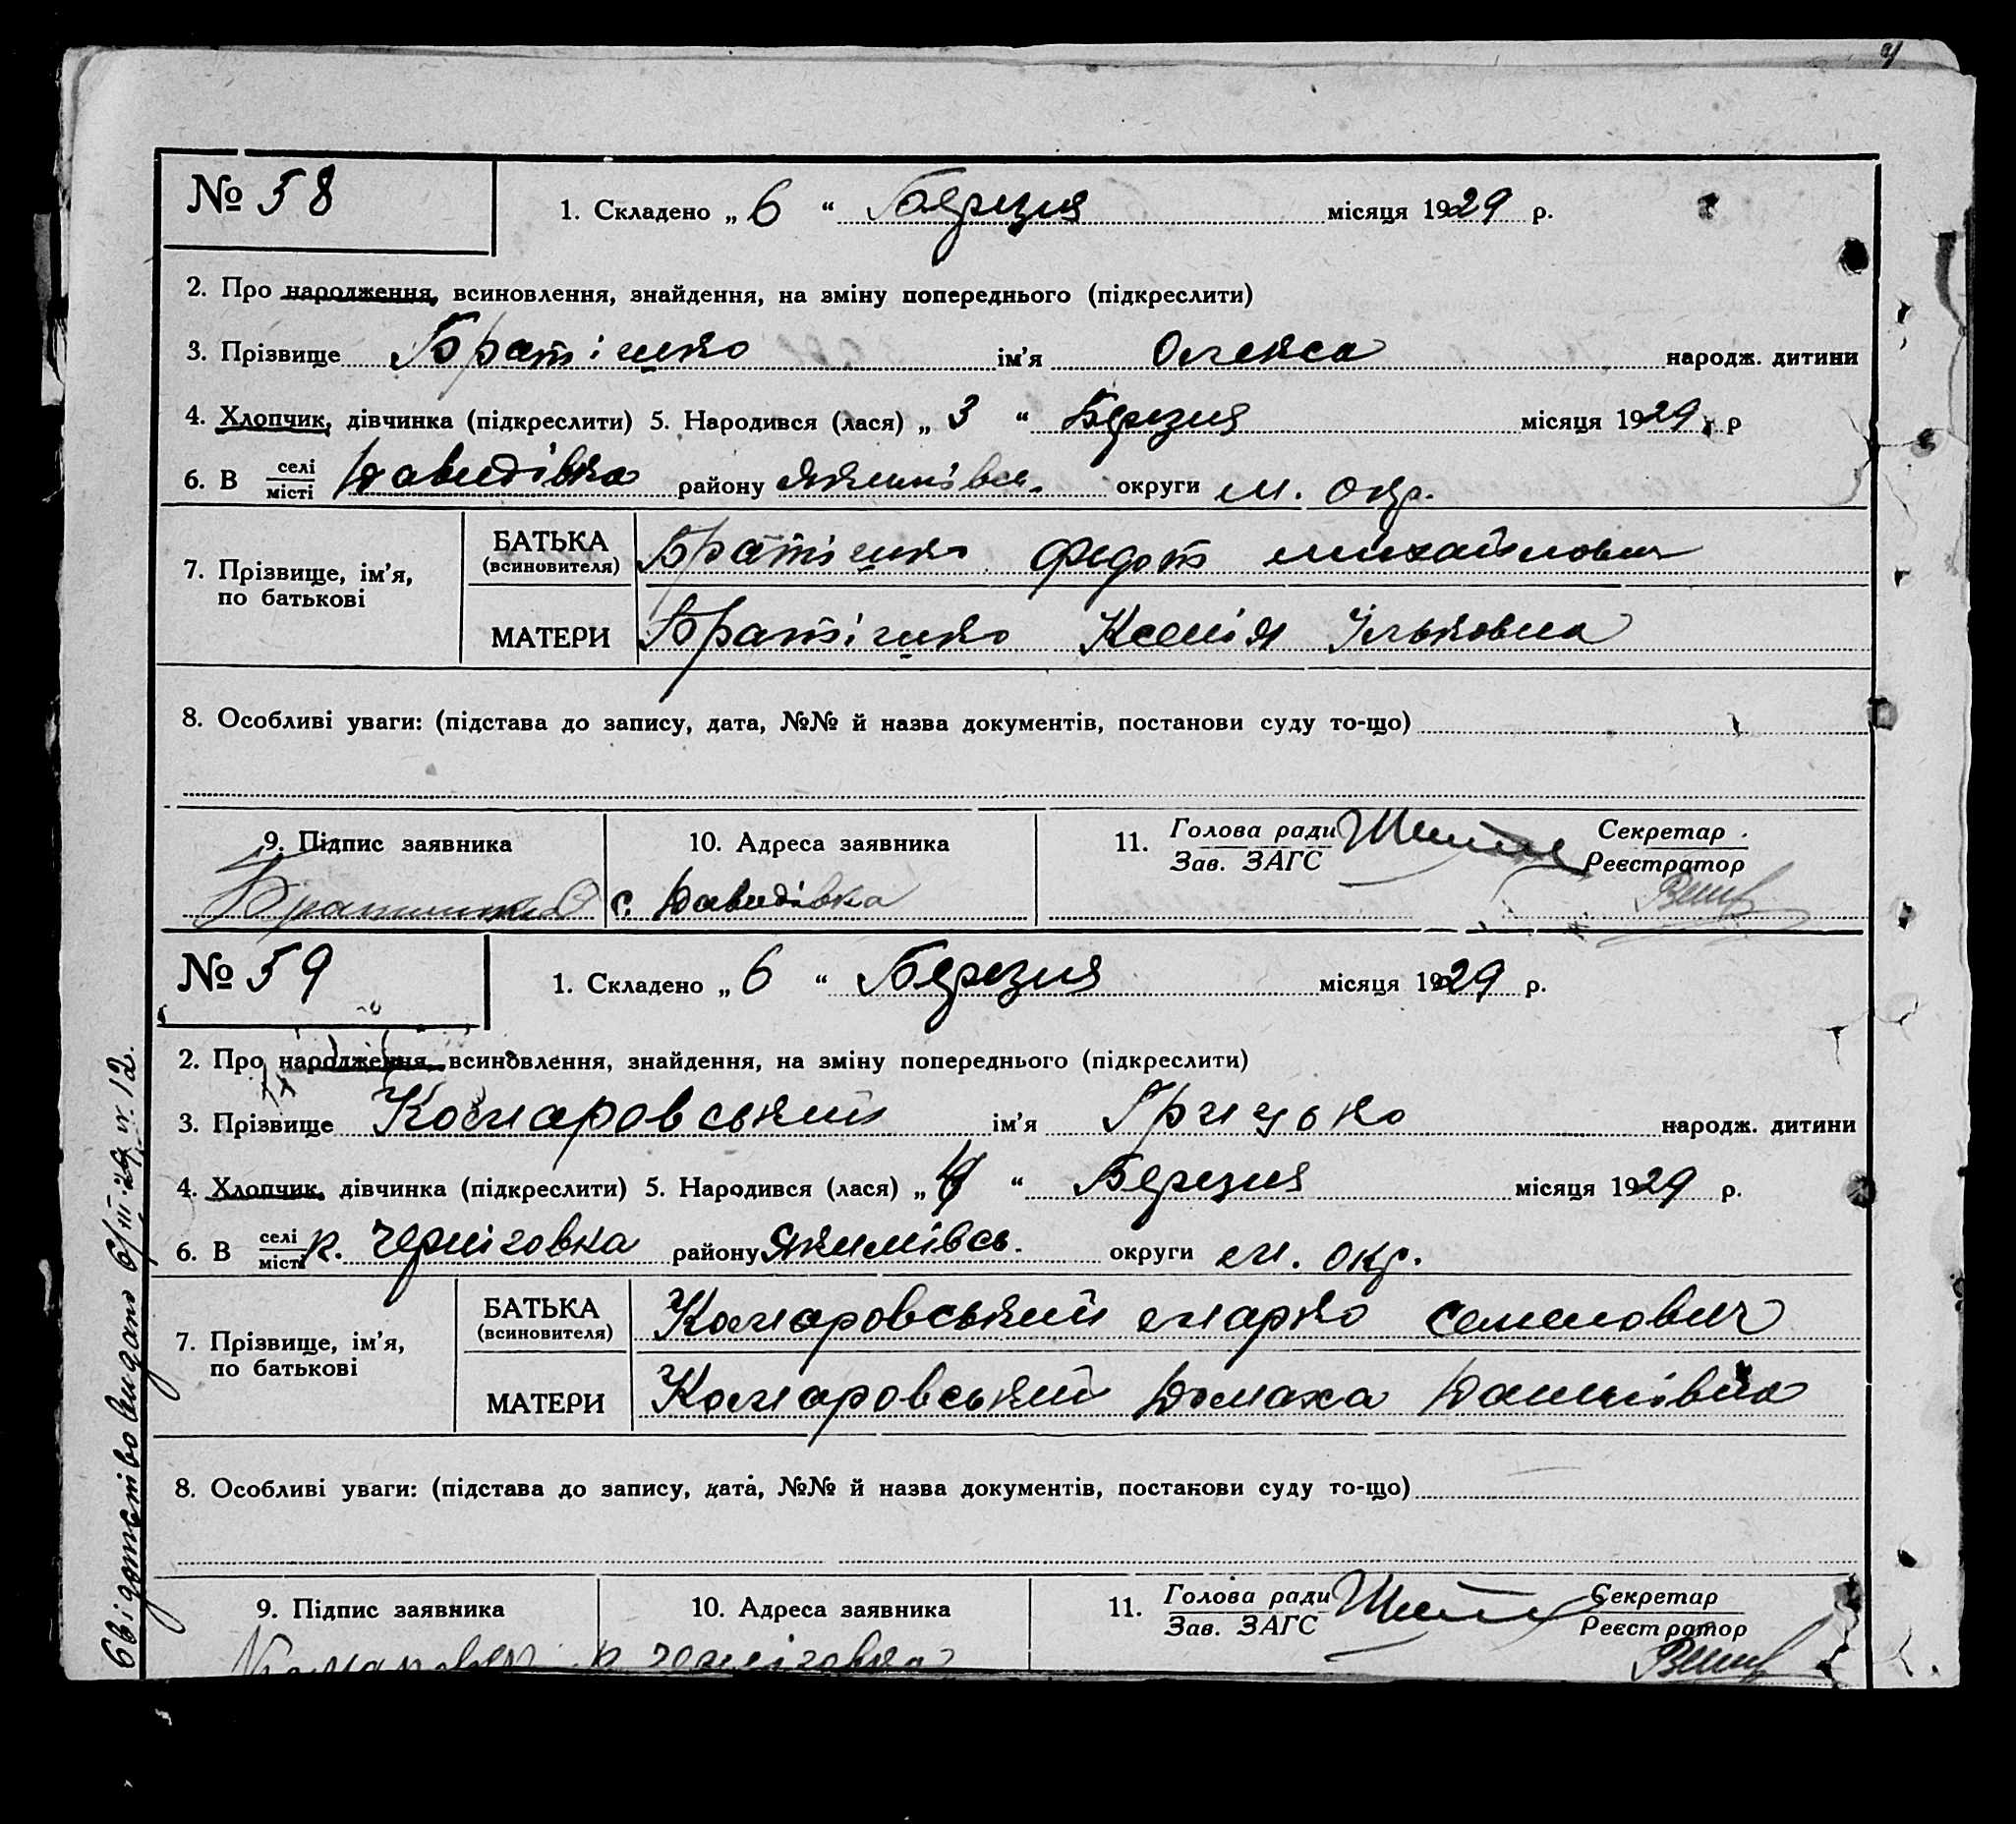 № 58
1. Складено „ 6 “ Березня місяця 1929 р.
2. Про народження, всиновлення, знайдення, на зміну попереднього (підкреслити)
3. Прізвище Братішко ім’я Олекса народж. дитини
4. Хлопчик, дівчинка (підкреслити) 5. Народився (лася) „ 3 “ Березня місяця 1929 р
6. В селі місті Давидівка району Якимівсь. округи м. окр.
7. Прізвище, ім’я, по батькові
БАТЬКА (всиновителя) Братішко Федот Михайлович
МАТЕРИ Братішко Ксенія Ільковна
8. Особливі уваги: (підстава до запису, дата, №№ й назва документів, постанови суду то-що)
9. Підпис заявника
10. Адреса заявника
11. Голова ради Зав. ЗАГС
Секретар Реєстратор
с. Давидівка
№ 59
1. Складено „ 6 “ Березня місяця 1929 р.
2. Про народження, всиновлення, знайдення, на зміну попереднього (підкреслити)
3. Прізвище Комаровський ім’я Грицько народж. дитини
4. Хлопчик, дівчинка (підкреслити) 5. Народився (лася) „ “ Березня місяця 1929 р.
6. В селі місті к. Черніговка району Якимівсь. округи м. окр.
7. Прізвище, ім’я, по батькові
БАТЬКА (всиновителя) Комаровський Марко Семенович
МАТЕРИ Комаровський Домаха Данилівна
8. Особливі уваги: (підстава до запису, дата, №№ й назва документів, постанови суду то-що)
9. Підпис заявника
10. Адреса заявника
11. Голова ради Зав. ЗАГС
Секретар Реєстратор
к. Черніговка
Свідотство видано 6/III-29 р. 12.